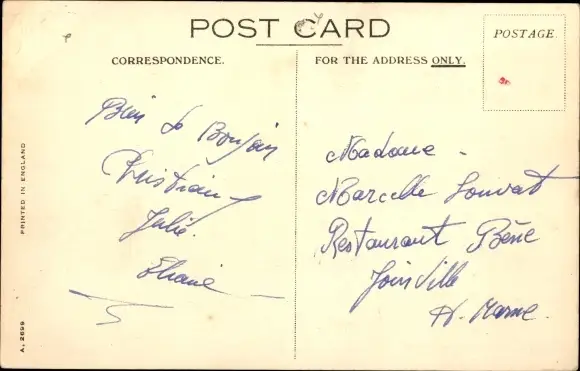 POST CARD
CORRESPONDENCE.
FOR THE ADDRESS ONLY.
POSTAGE.
Bien le Bonjour
Christian
Julie.
Eliane
Madame
Marcelle Louvat
Restaurant Bène
Joinville
H. Marne.
PRINTED IN ENGLAND
A. 2699